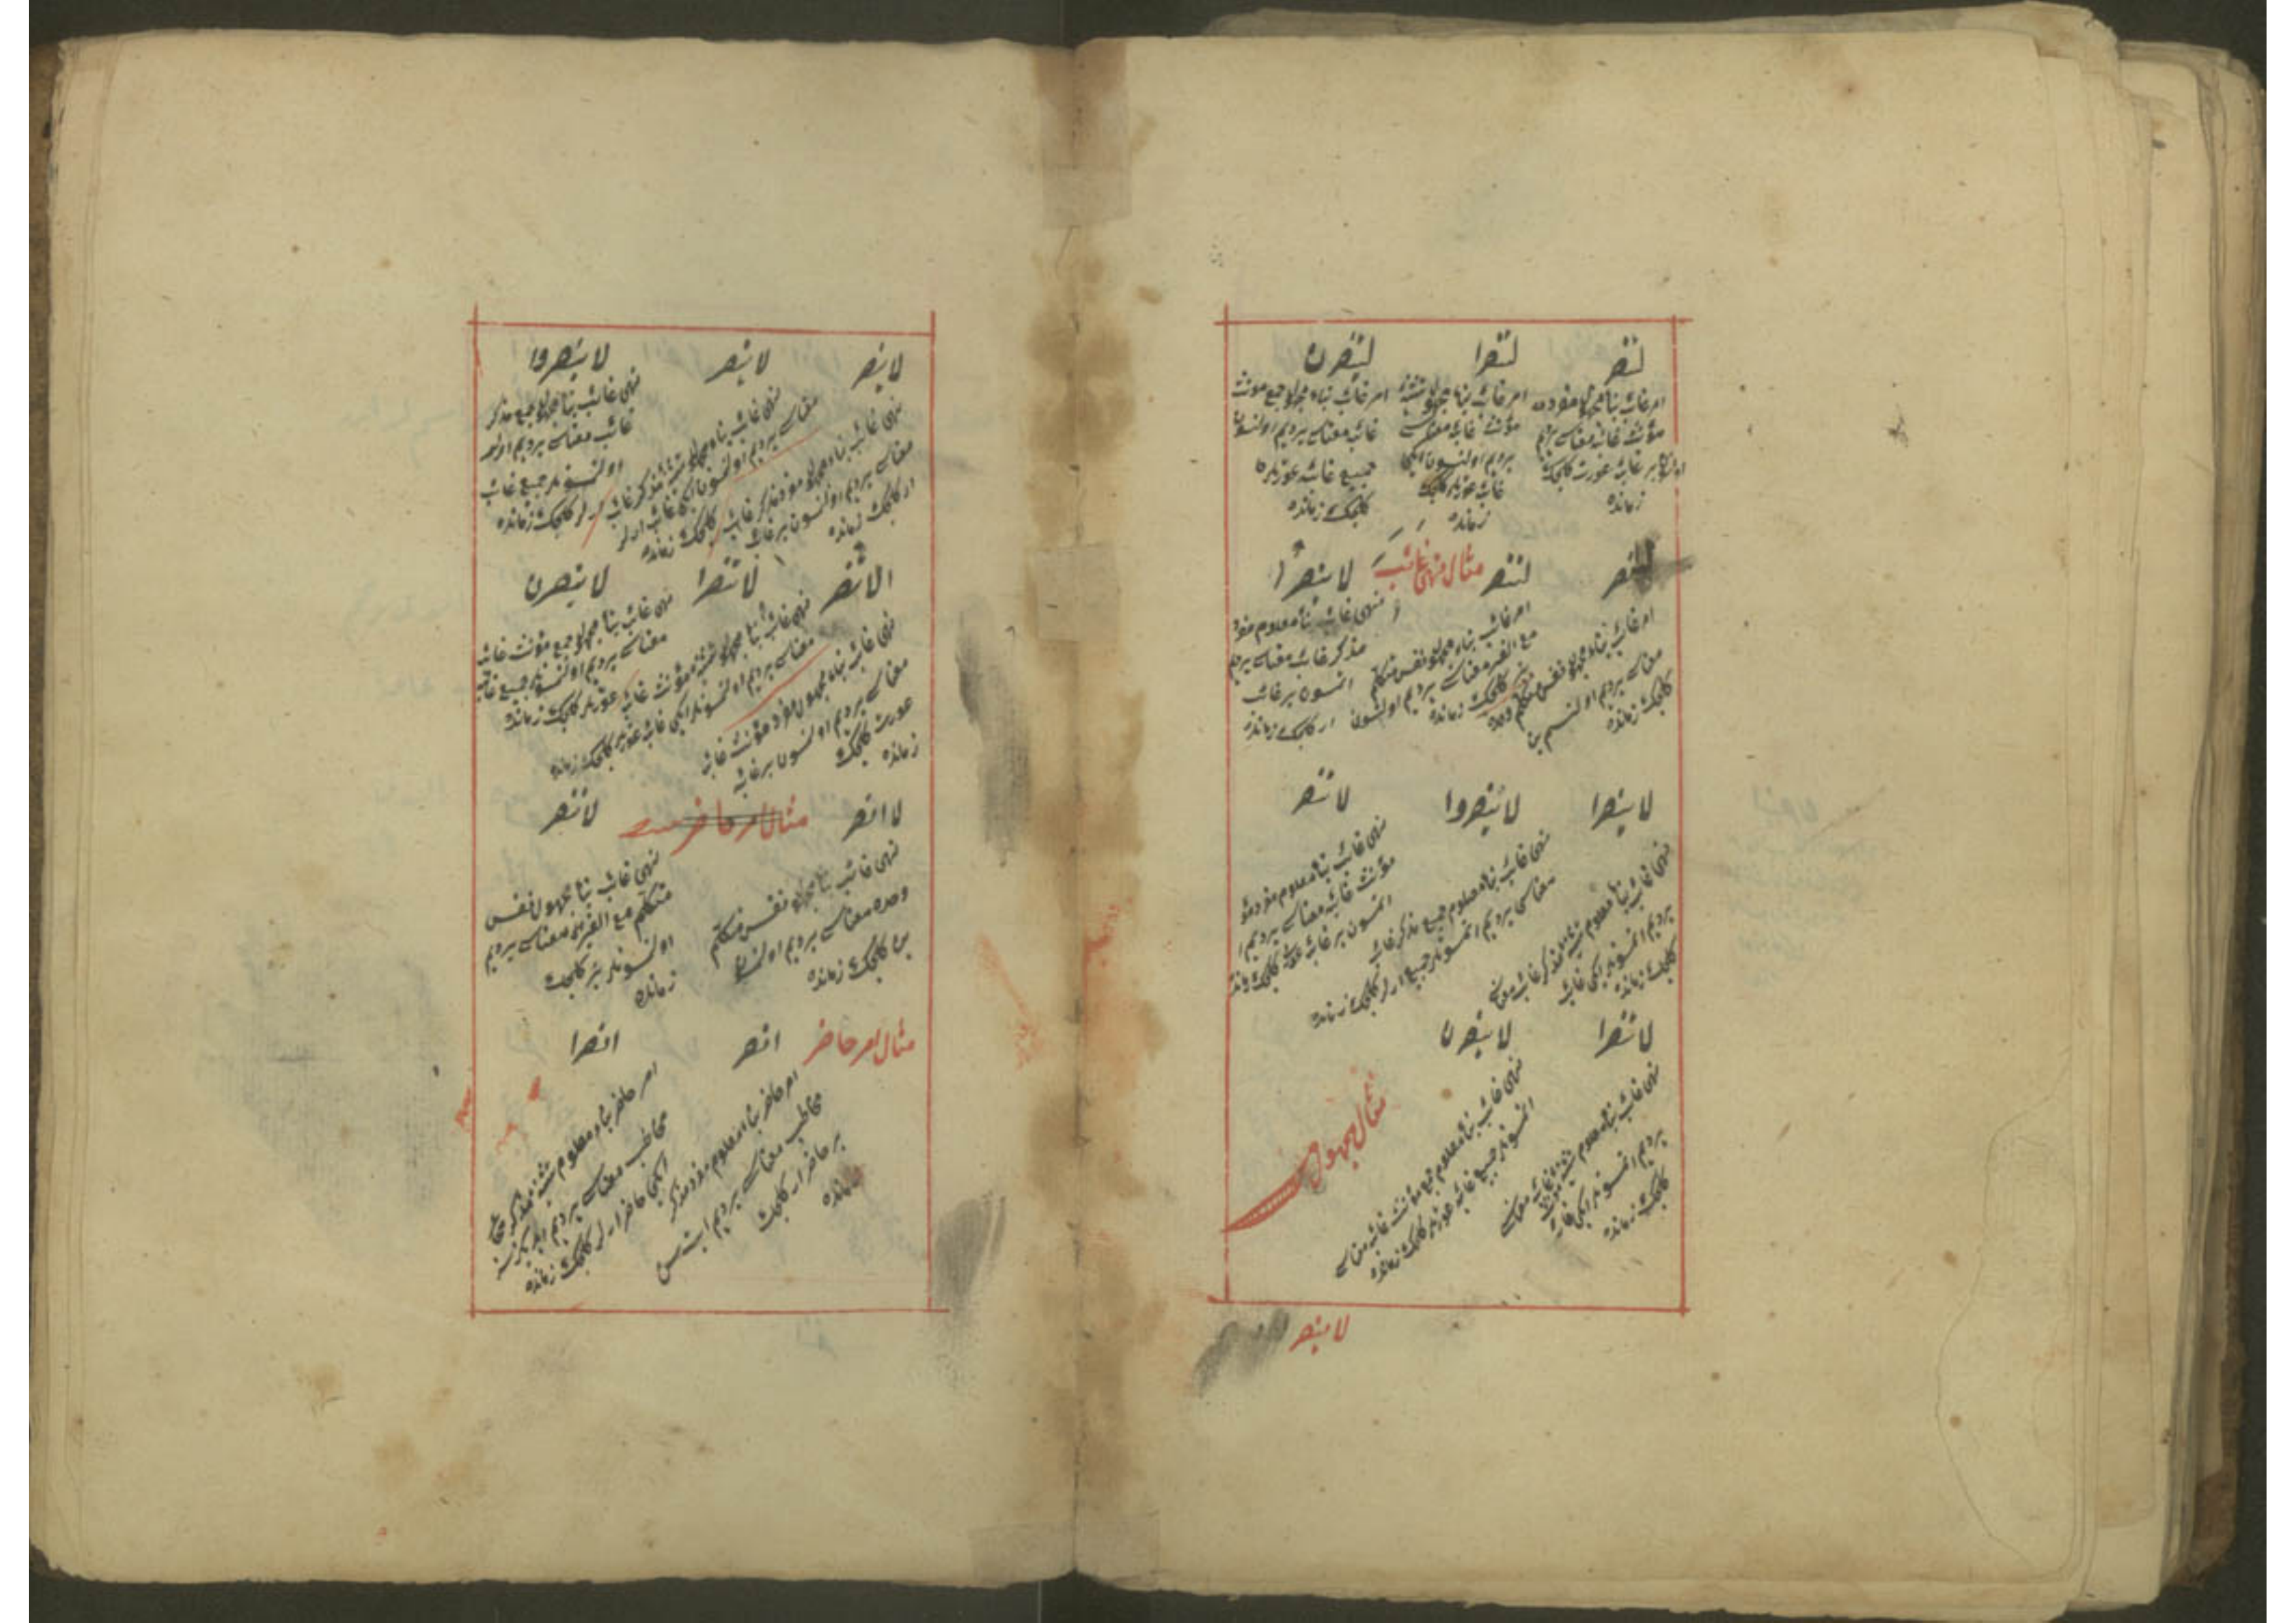 لتنصر
امر غائب بناء مجهول مفرده
مؤنث غائبه معناسی یردیم
اولنسون بر غائب عورت کلجک
زمانده
لتنصرا
امر غائب بناء مجهول تثنیه
مؤنث غائبه معناسی
یردیم اولنسون ایکی
غائب عورتلر کلجک
زمانده
لینصرن
امر غائب بناء مجهول جمع مؤنث
غائبه معناسی یردیم اولنسون
جمیع غائبه عورتلره
کلجک زمانده
لانصر
امر غائب بناء مجهول نفس متکلم وحده
معناسی یردیم اولنسم بن
کلجک زمانده
لننصر
امر غائب بناء مجهول نفس متکلم
مع الغیر معناسی یردیم اولنسون
کلجک زمانده
مثال نهی غائب
لا ینصر
نهی غائب بناء معلوم مفرد
مذکر غائب معناسی یردیم
اتمسون بر غائب
ار کلجک زمانده
لا ینصرا
نهی غائب بناء معلوم تثنیه مذکر غائب معناسی
یردیم اتمسونلر ایکی غائب
کلجک زمانده
لا ینصروا
نهی غائب بناء معلوم جمع مذکر غائب
معناسی یردیم اتمسونلر جمیع ارلر کلجک زمانده
لا تنصر
نهی غائب بناء معلوم مفرد
مؤنث غائبه معناسی یردیم
اتمسون بر غائب عورت کلجک
لا تنصرا
نهی غائب بناء معلوم تثنیه مؤنث غائبه معناسی
یردیم اتمسونلر ایکی غائبه
کلجک زمانده
لا ینصرن
نهی غائب بناء معلوم جمع مؤنث غائبه معناسی
اتمسونلر جمیع غائبه عورتلر کلجک زمانده
مثال مجهول
لا ینصر
لا ینصر
نهی غائب بناء مجهول مفرد مذکر غائب
معناسی یردیم اولنسون بر غائب
ار کلجک زمانده
لا ینصرا
نهی غائب بناء مجهول تثنیه مذکر غائب
معناسی یردیم اولنسون ایکی غائب ارلر
کلجک زمانده
لا ینصروا
نهی غائب بناء مجهول جمع مذکر
غائب معناسی یردیم
اولنسونلر جمیع غائب
ارلر کلجک زمانده
لا تنصر
نهی غائب بناء مجهول مفرد مؤنث غائبه
معناسی یردیم اولنسون بر غائبه
عورت کلجک
زمانده
لا تنصرا
نهی غائب بناء مجهول تثنیه مؤنث غائبه
معناسی یردیم اولنسونلر ایکی غائب عورتلر کلجک زمانده
لا ینصرن
نهی غائب بناء مجهول جمع مؤنث غائبه
معناسی یردیم اولنسونلر جمیع غائبه
عورتلر کلجک زمانده
لا انصر
نهی غائب بناء مجهول نفس متکلم
وحده معناسی یردیم
بن کلجک زمانده
مثال امر حاضر
لا ننصر
نهی غائب بناء مجهول نفس
متکلم مع الغیر معناسی یردیم
اولنسونلر بز کلجک
زمانده
مثال امر حاضر
انصر
امر حاضر بناء معلوم مفرد مذکر
مخاطب معناسی یردیم ایت سن
بر حاضر ار کلجک
زمانده
انصرا
امر حاضر بناء معلوم تثنیه مذکر
مخاطب معناسی یردیم
ایکی حاضر ارلر کلجک زمانده